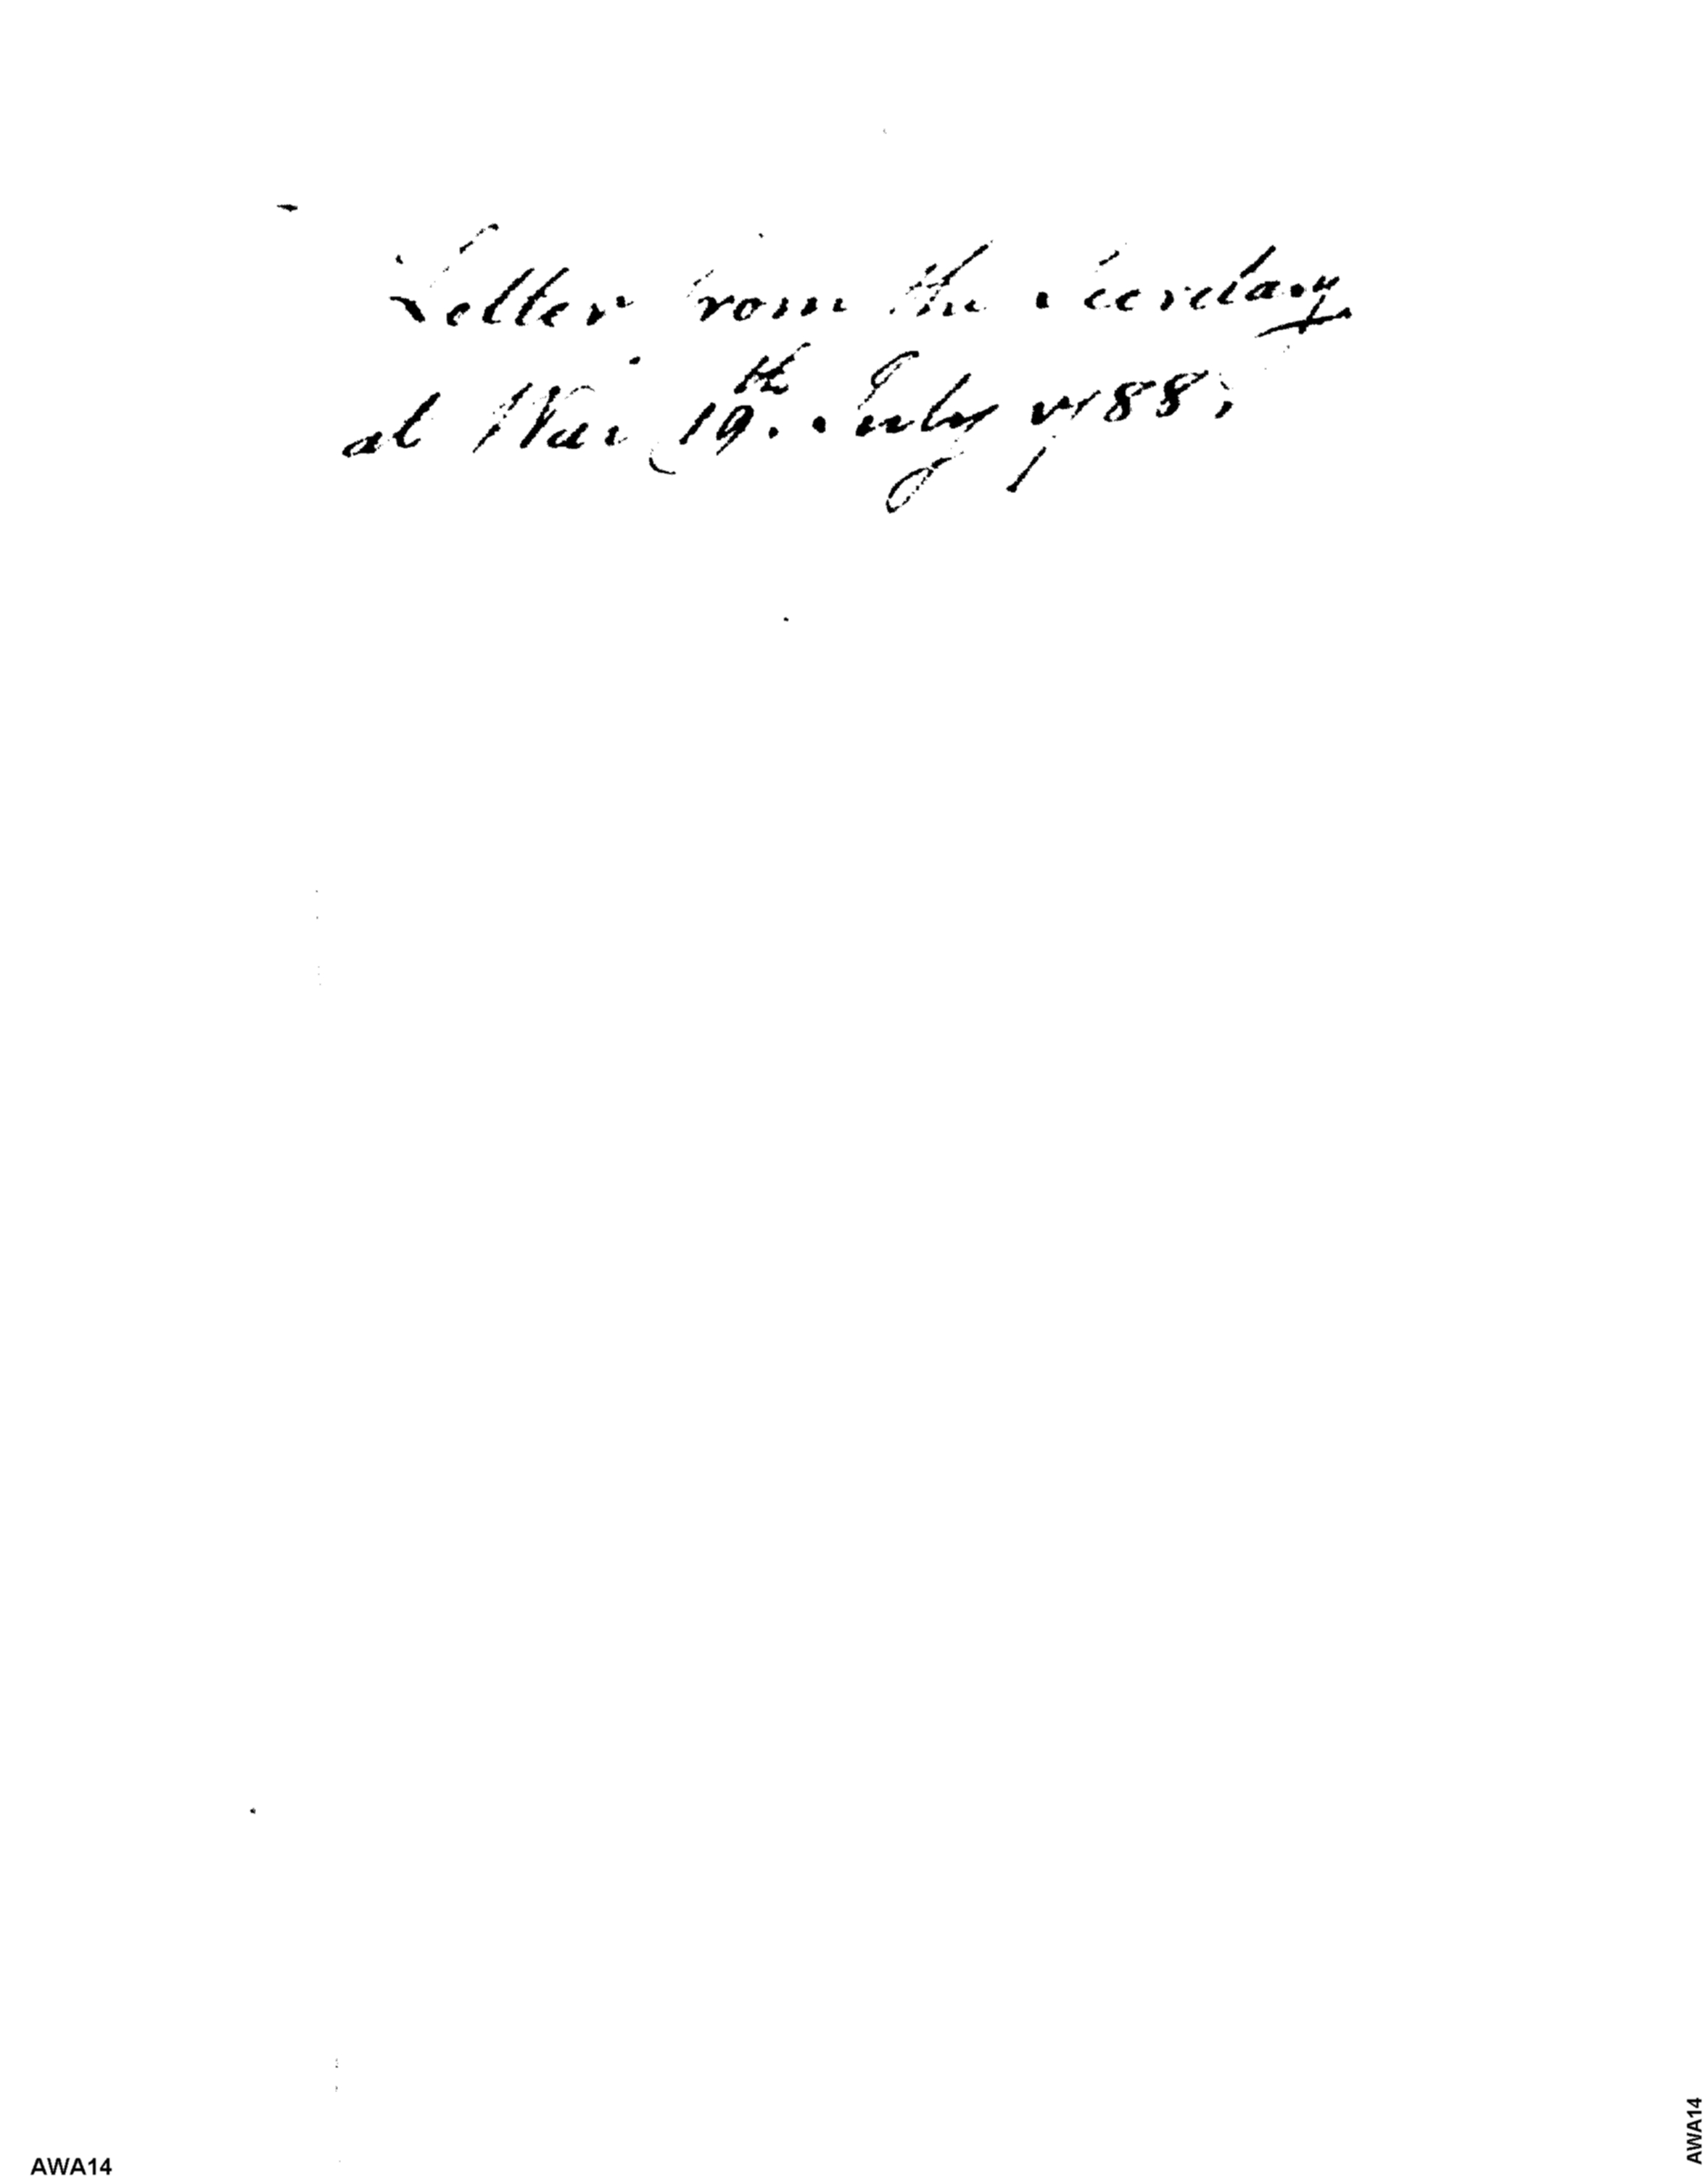 Letter from the Secretary
at War 19th July 1788
AWA14
AWA14